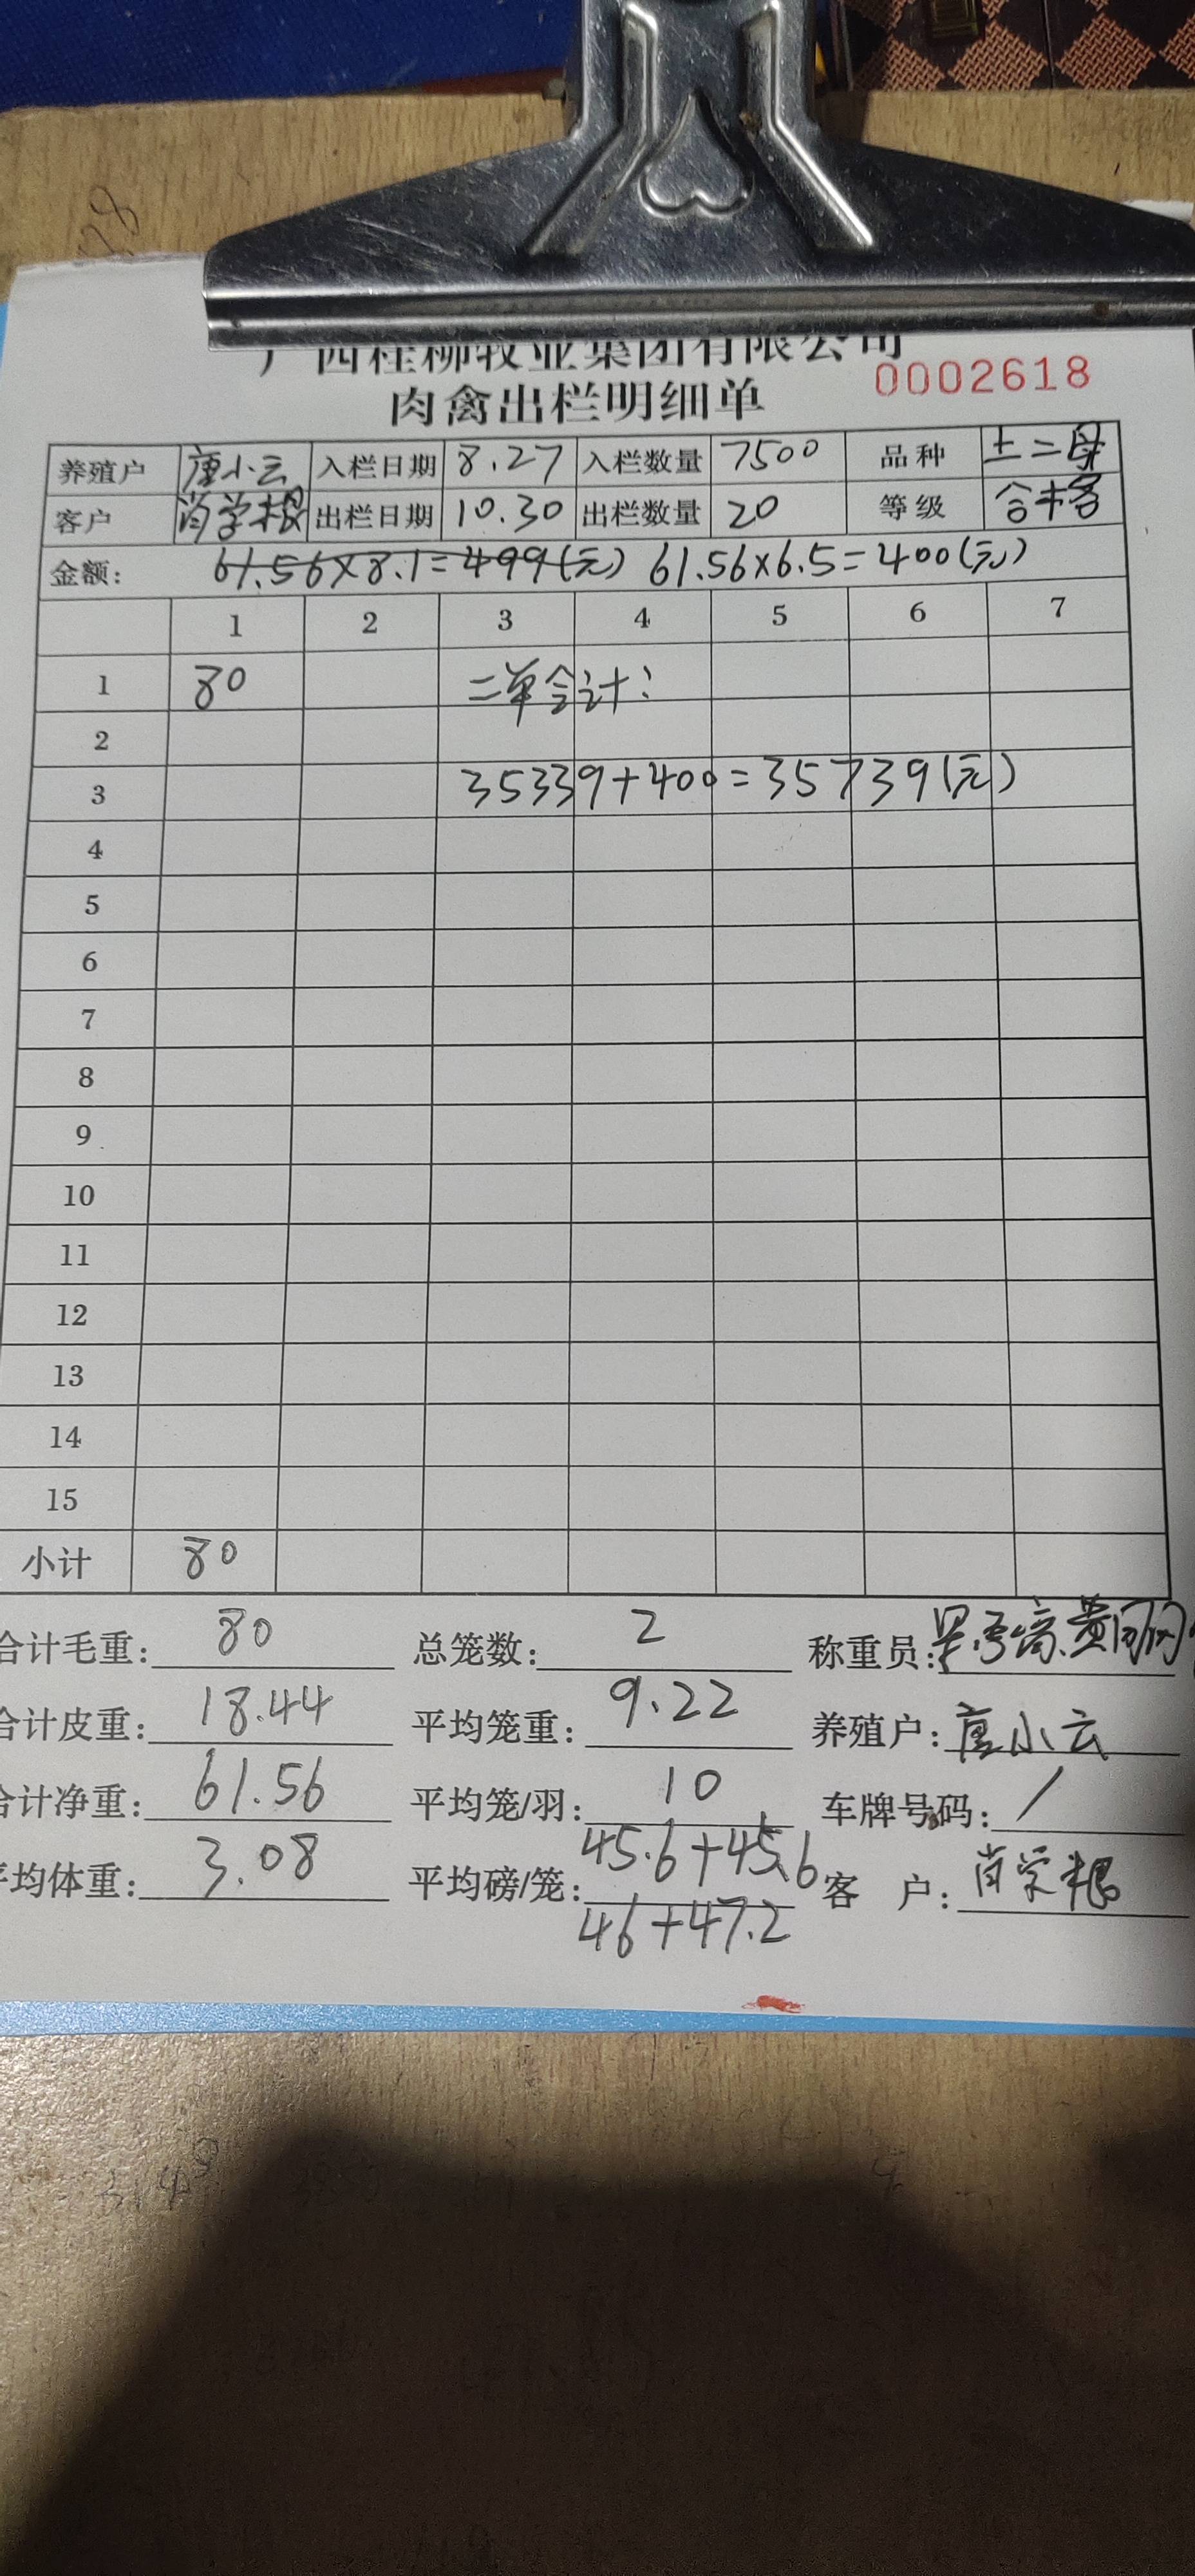 广西桂柳牧业集团有限公司
肉禽出栏明细单 0002618
养殖户 唐小云 入栏日期 8.27 入栏数量 7500 品种 土二母
客户 肖学根 出栏日期 10.30 出栏数量 20 等级 合格
金额: 61.56×8.1=499(元) 61.56×6.5=400(元)
1 2 3 4 5 6 7
1 80 二单合计:
2
3 35339+400=35739(元)
4
5
6
7
8
9
10
11
12
13
14
15
小计 80
合计毛重: 80 总笼数: 2 称重员:
合计皮重: 18.44 平均笼重: 9.22 养殖户: 唐小云
合计净重: 61.56 平均笼/羽: 10 车牌号码: /
平均体重: 3.08 平均磅/笼: 45.6+45.6 客 户: 肖学根
46+47.2